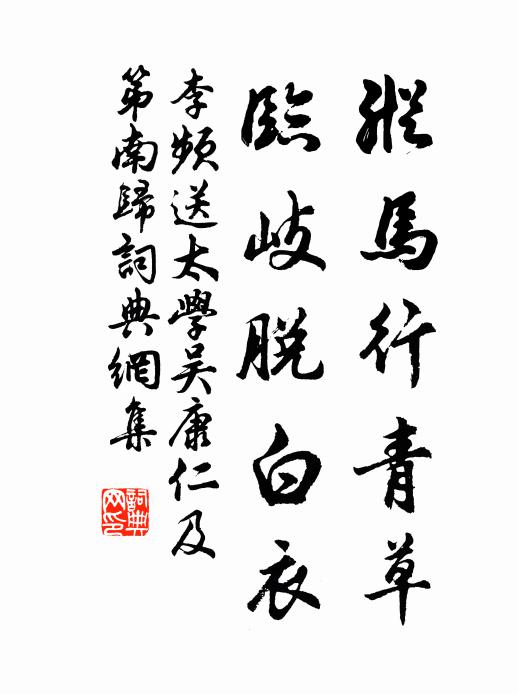 縱馬行青草
臨岐脫白衣
李頻送太學吳康仁及
第南歸詞典網集
詞典
网印